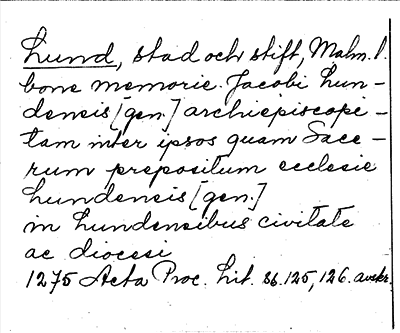 Lund, stad och stift, Malm. l.
bone memorie. Jacobi Lun-
densis [gen.] archiepiscopi -
tam inter ipsos quam Sace -
rum prepositum ecclesie
Lundensis [gen.]
in Lundensibus civitate
ac diocesi
1275 Acta Proc. Lit. ss. 125, 126. avskr.